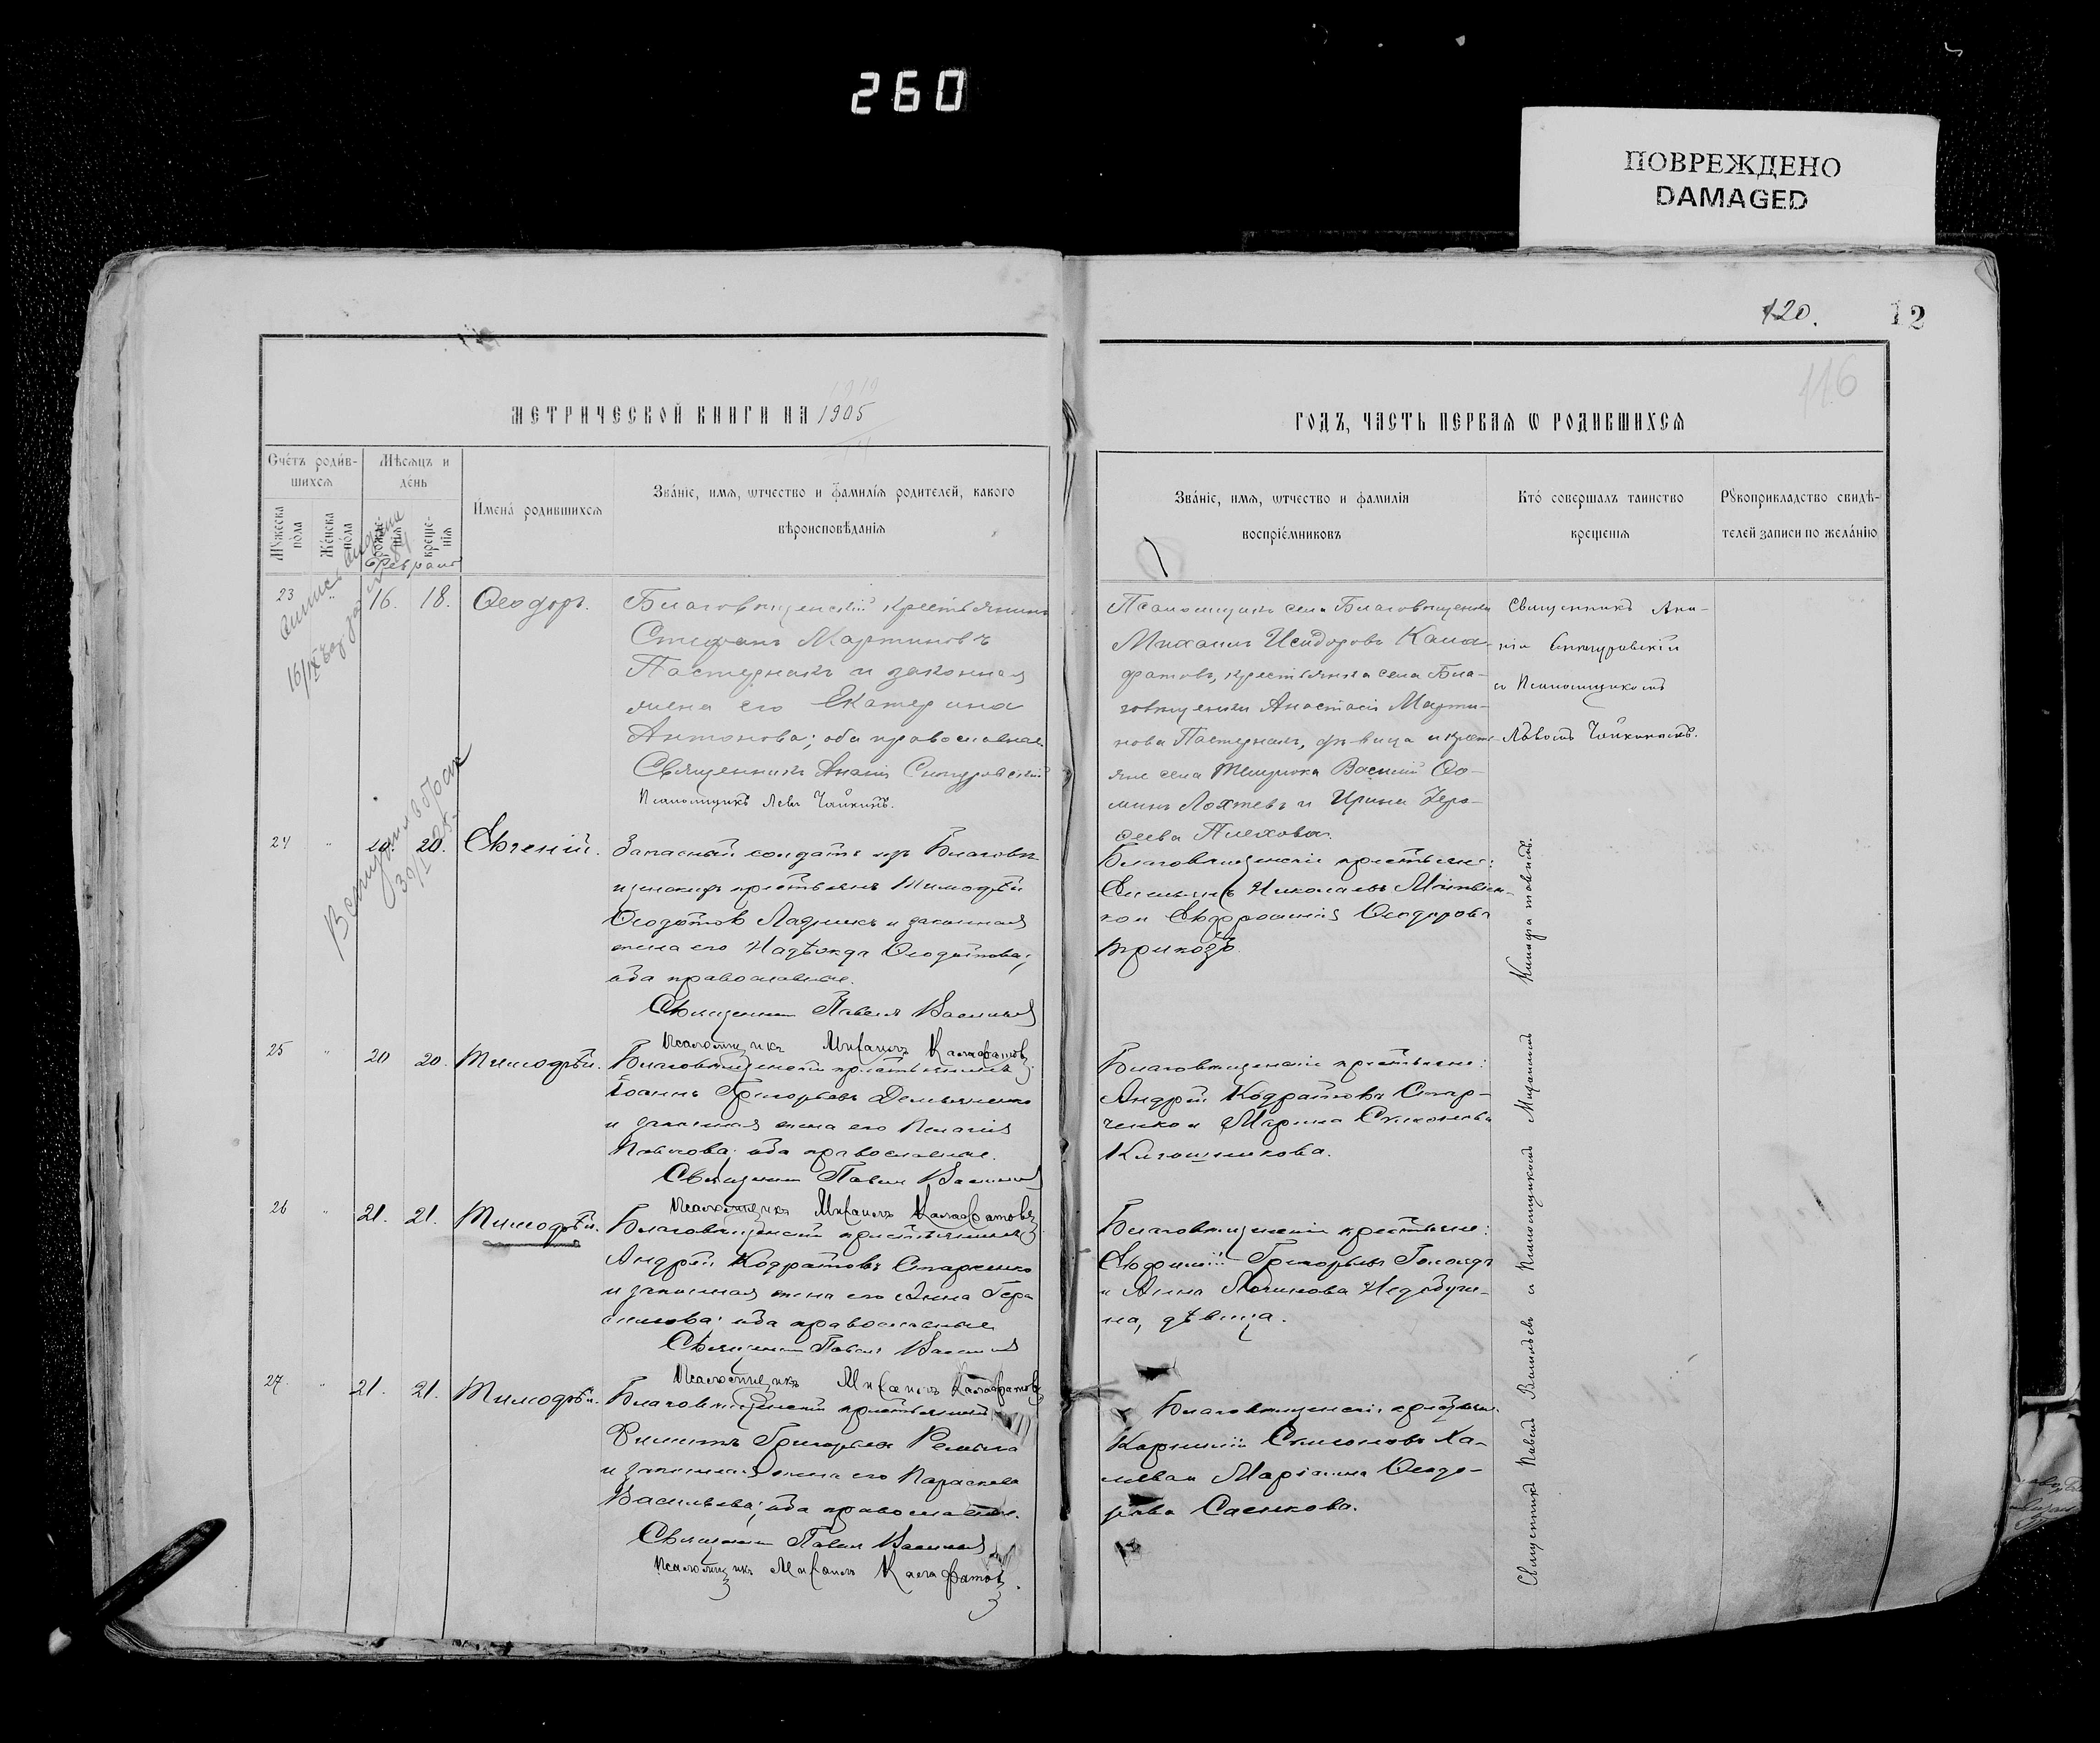 260
ПОВРЕЖДЕНО
DAMAGED
120.
12
116
МЕТРИЧЕСКОЙ КНИГИ НА 1905
ГОДЪ, ЧАСТЬ ПЕРВАЯ Ѡ РОДИВШИХСЯ
Счетъ родив-
шихся
Мужеска пола
Женска пола
Мѣсяцъ и
день
рожде-
нія
креще-
нія
Имена родившихся
Званіе, имя, ѿчество и фамилія родителей, какого
вѣроисповѣданія
Званіе, имя, ѿчество и фамилія
воспріемниковъ
Кто совершалъ таинство
крещенія
Рукоприкладство свидѣ-
телей записи по желанію
Февраль
23 " 16. 18. Ѳеодоръ.
Благовѣщенскій крестьянинъ
Стефанъ Мартиновъ
Пастернакъ и законная
жена его Екатерина
Антонова; оба православные.
Священникъ Ананій
Псаломщикъ Левъ Чайкинъ.
Псаломщикъ села Благовѣщенки
Михаилъ Исидоровъ Кала-
фатовъ, крестьянка села Бла-
говѣщенки Анастасія Марти-
нова Пастернакъ, дѣвица и крест-
яне села Тимашевка Василій Ѳо-
минъ Лохтевъ и Ирина Гера-
сиева Плехова.
Священникъ Ана-
ній
съ Псаломщикомъ
Львомъ Чайкинымъ.
Вступилъ въ бракъ
24 " 20. 20. Евгеній.
Запасный солдатъ изъ Благовѣ-
щенскихъ крестьянъ Тимофѣй
Ѳеодотовъ Ладикъ и законная
жена его Надежда Ѳеодотова;
оба православные.
Священникъ Павелъ Васильевъ
Псаломщикъ Михаилъ Калафатовъ
Благовѣщенскіе крестьяне:
Емельянъ Николаевъ Матвіен-
ко и Евфросинія Ѳеодорова
Приходь.
25 " 20 20. Тимофѣй.
Благовѣщенскій крестьянинъ
Іоаннъ Григорьевъ Демьяненко
и законная жена его Пелагія
Павлова; оба православные.
Священникъ Павелъ Васильевъ
Псаломщикъ Михаилъ Калафатовъ
Благовѣщенскіе крестьяне:
Андрей Кодратовъ Стар-
ченко и Марина Симонова
Калашникова.
26 " 21. 21. Тимофѣй.
Благовѣщенскій крестьянинъ
Андрей Кодратовъ Старченко
и законная жена его Анна Гера-
симова; оба православные
Священникъ Павелъ Васильевъ
Псаломщикъ Михаилъ Калафатовъ
Благовѣщенскіе крестьяне:
Евфимій Григорьевъ Голояда
и Анна Логинова Недобуги-
на, дѣвица.
27. " 21. 21. Тимофѣй.
Благовѣщенскій крестьянинъ
Филиппъ Григорьевъ Ремыга
и законная жена его Параскева
Васильева; оба православные.
Священникъ Павелъ Васильевъ
Псаломщикъ Михаилъ Калафатовъ.
Благовѣщенскіе крестьяне:
Корнилій Симоновъ Ха-
лява и Маріанна Ѳеодо-
рова Саенкова.
Священникъ Павелъ Васильевъ и Псаломщикомъ Михаиломъ Калафатовымъ.